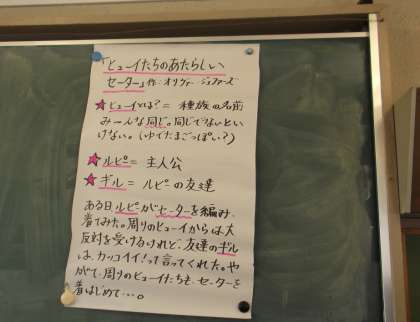 「ヒューイたちのあたらしい
セーター」作 オリヴァー ジェファーズ
★ヒューイとは?= 種族の名前
みーんな同じ。同じでないと
いけない。(ゆでたまごっぽい?)
★ルピ= 主人公
★ギル= ルピの友達
ある日ルピがセーターを編み、
着てみた。周りのヒューイからは大
反対を受けるけれど、友達のギル
は、カッコイイ!って言ってくれた。や
がて、周りのヒューイたちも、セーターを
着はじめて…。